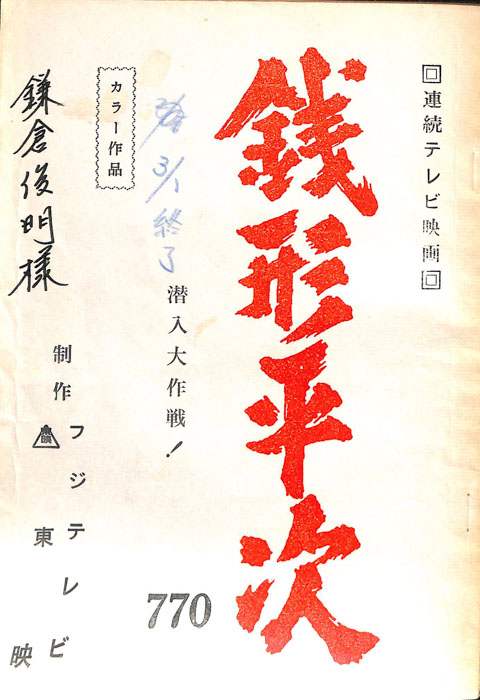 連続テレビ映画
銭形平次
潜入大作戦!
770
3/1 終了
カラー作品
制作
フジテレビ
東映
鎌倉俊明様